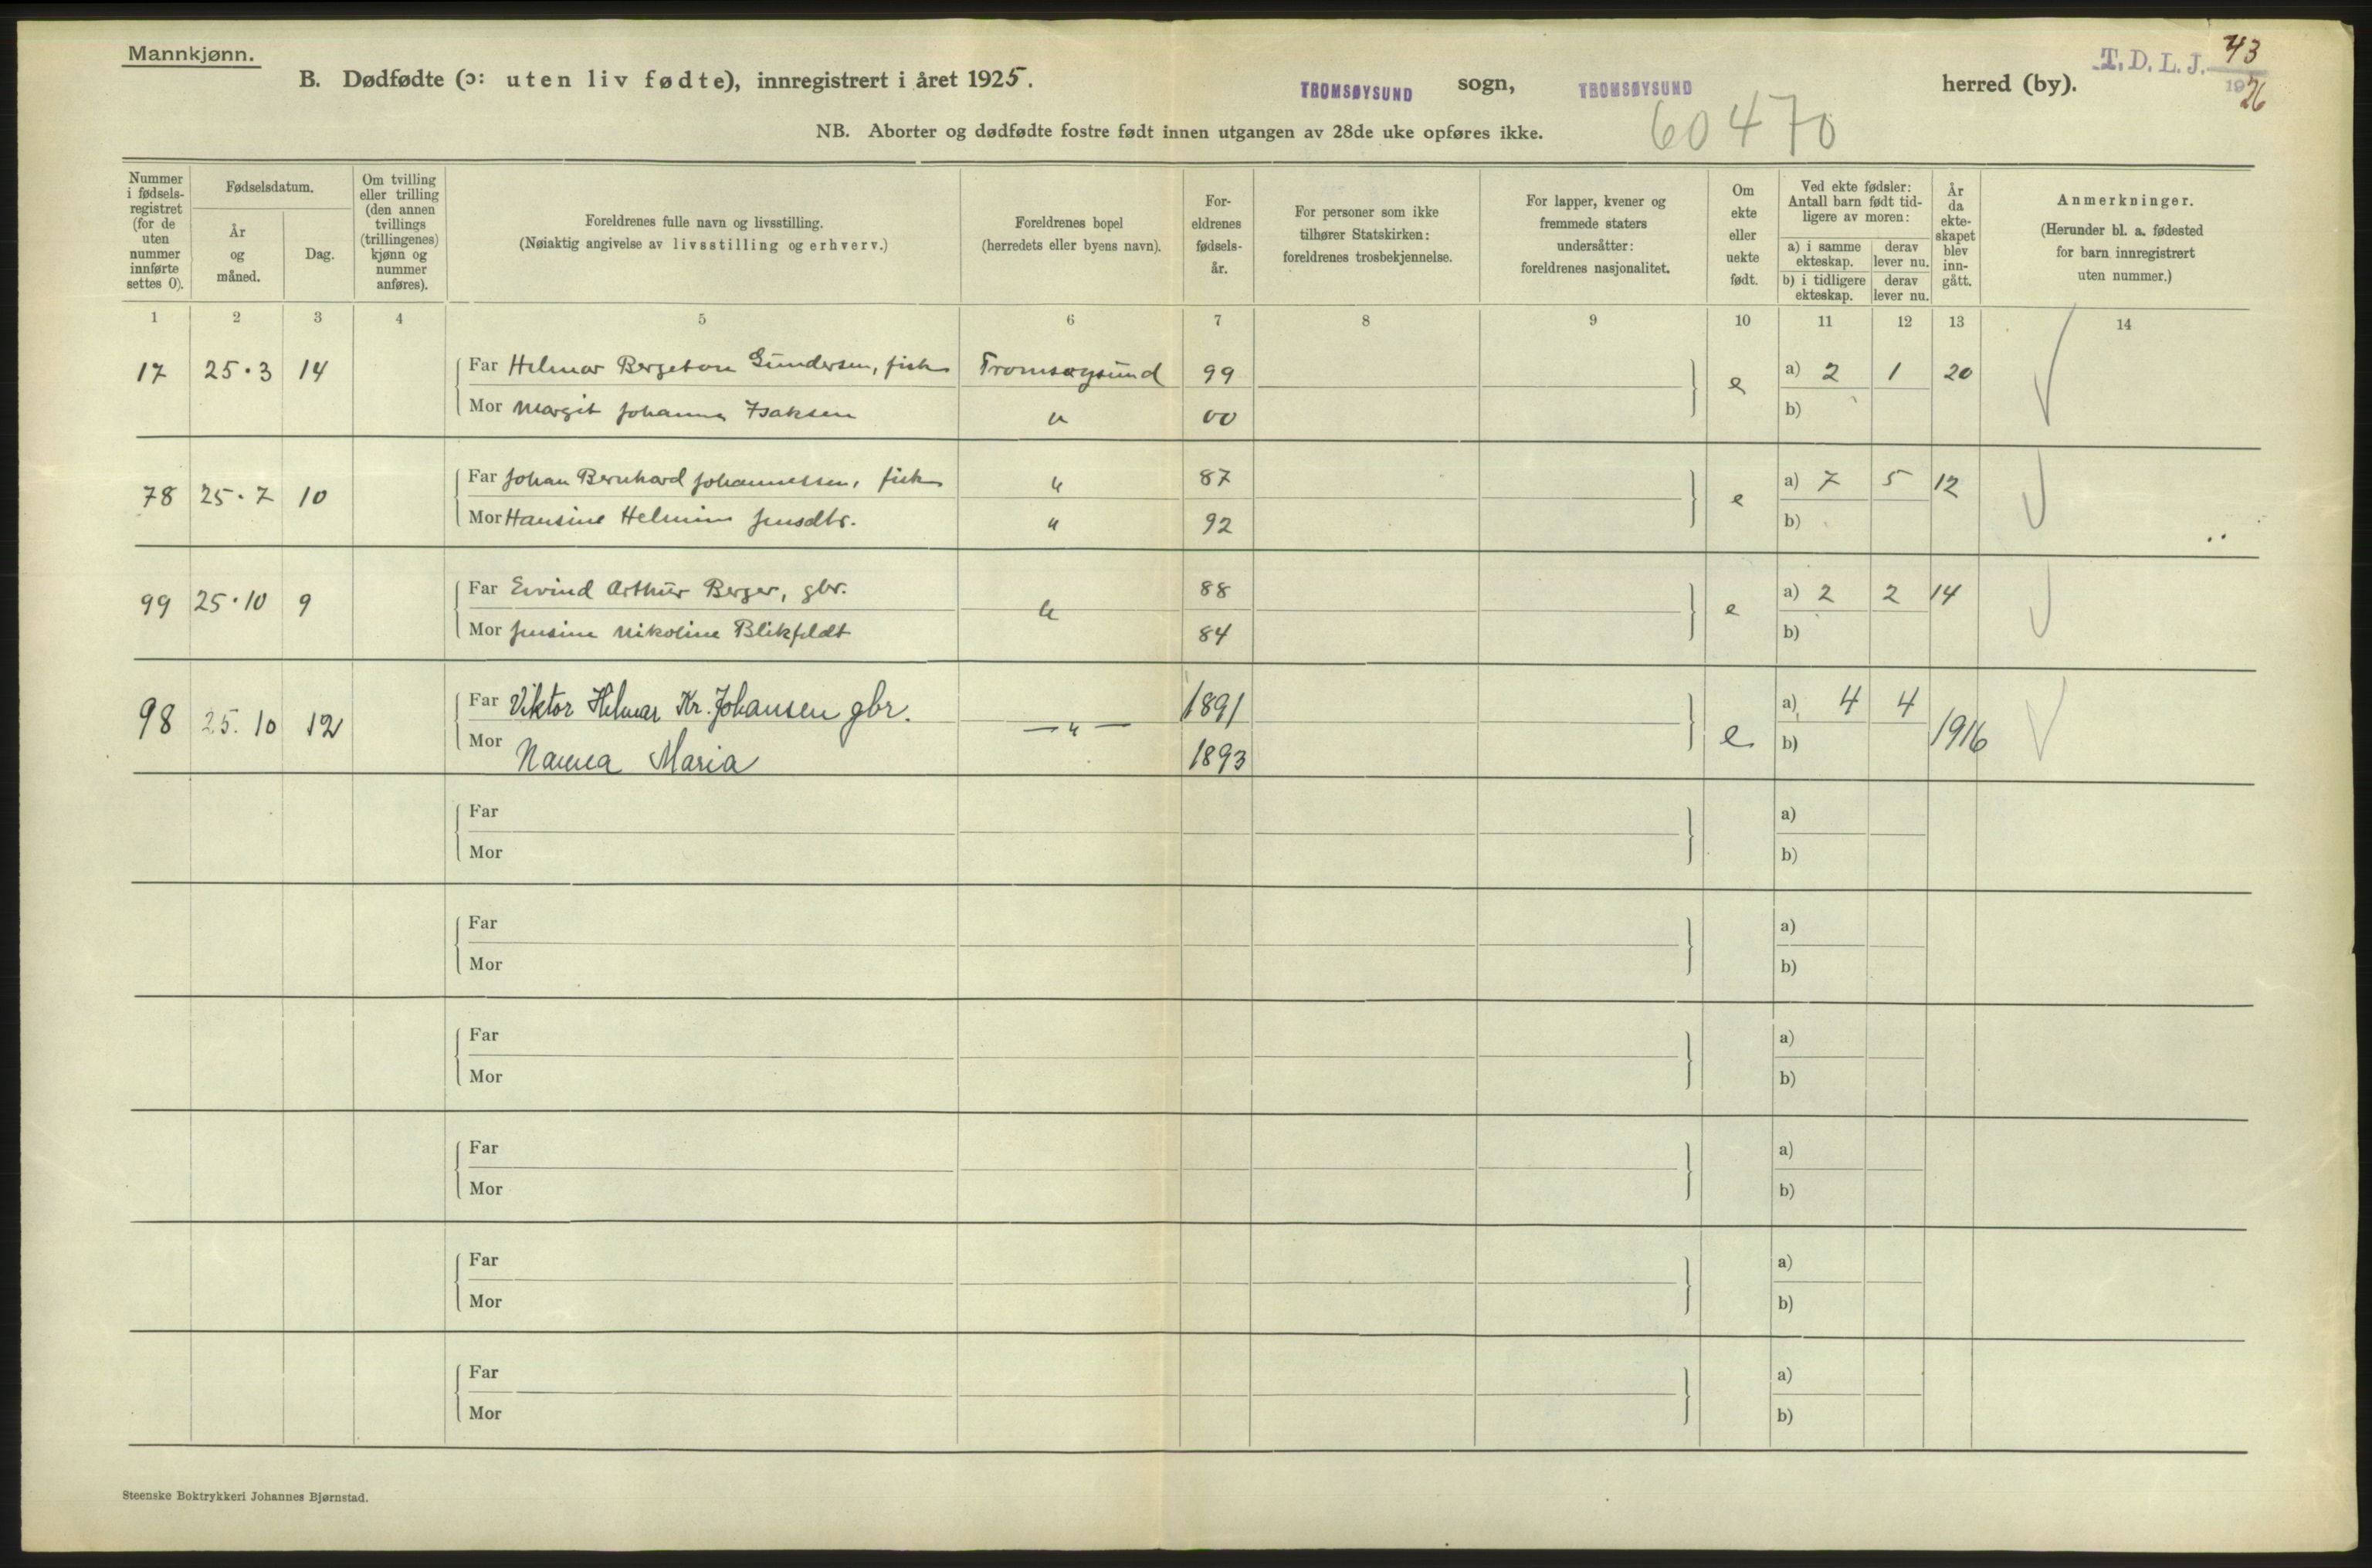 Mannkjønn.
T. D. L. J. 43
1926
B. Dødfødte (ɔ: uten liv fødte), innregistrert i året 1925. TROMSØYSUND sogn, TROMSØYSUND herred (by).
NB. Aborter og dødfødte fostre født innen utgangen av 28de uke opføres ikke.
60470
Nummer i fødselsregistret (for de uten nummer innførte settes 0).
Fødselsdatum.
År og måned.
Dag.
Om tvilling eller trilling (den annen tvillings (trillingenes) kjønn og nummer anføres).
Foreldrenes fulle navn og livsstilling.
(Nøiaktig angivelse av livsstilling og erhverv.)
Foreldrenes bopel
(herredets eller byens navn).
Foreldrenes fødselsår.
For personer som ikke tilhører Statskirken: foreldrenes trosbekjennelse.
For lapper, kvener og fremmede staters undersåtter: foreldrenes nasjonalitet.
Om ekte eller uekte født.
Ved ekte fødsler: Antall barn født tidligere av moren:
a) i samme ekteskap.
derav lever nu.
b) i tidligere ekteskap.
derav lever nu.
År da ekteskapet blev inngått.
Anmerkninger.
(Herunder bl. a. fødested for barn innregistrert uten nummer.)
1 2 3 4 5 6 7 8 9 10 11 12 13 14
17 25·3 14 Far Helmar Bergeton Gundersen, fisk Tromsøysund 99 e a) 2 1 20
Mor Margit Johanna Isaksen " 00 b)
78 25·7 10 Far Johan Bernhard Johannessen, fisk " 87 e a) 7 5 12
Mor Hansine Helmine Jensdtr. " 92 b)
99 25·10 9 Far Eivind Arthur Berger, gbr. " 88 e a) 2 2 14
Mor Jensine Nikoline Blikfeldt 84 b)
98 25.10 12 Far Viktor Hilmar Kr. Johansen gbr. — " — 1891 e. a) 4 4 1916
Mor Nanna Maria 1893 b)
Far a)
Mor b)
Far a)
Mor b)
Far a)
Mor b)
Far a)
Mor b)
Far a)
Mor b)
Far a)
Mor b)
Steenske Boktrykkeri Johannes Bjørnstad.